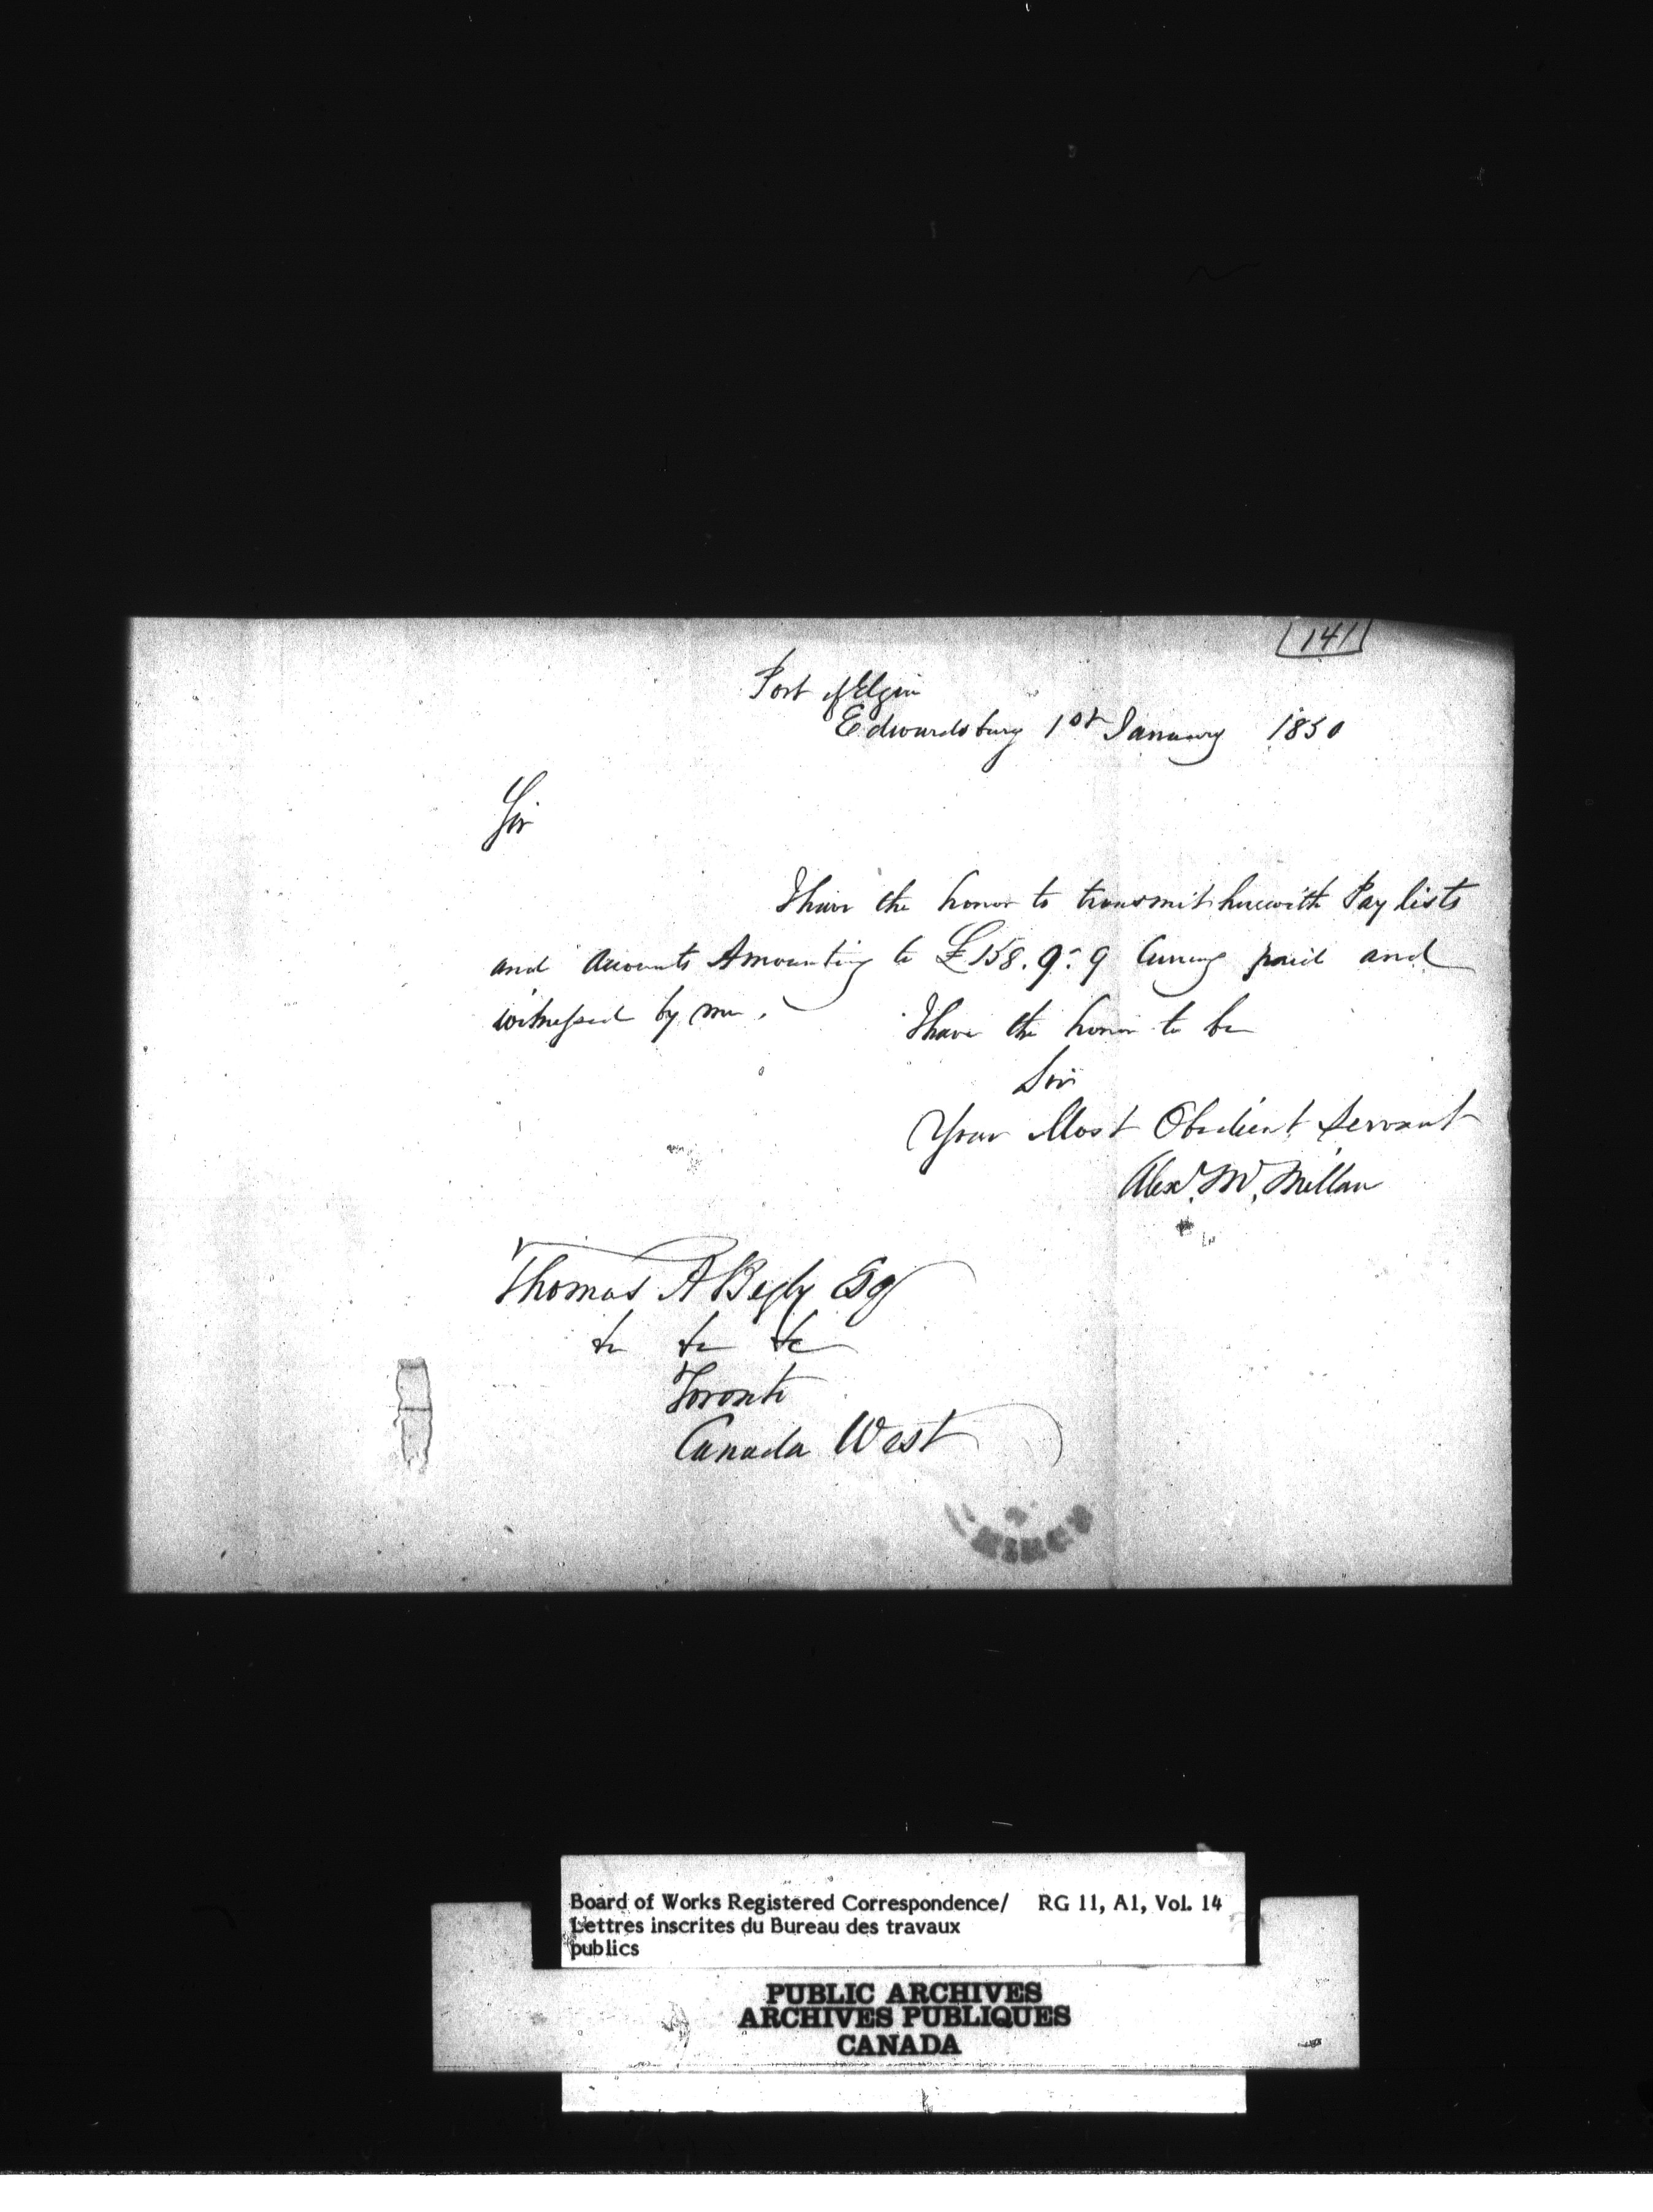 141
Port of Elgin
Edwardsburg 1st January 1850
Sir
I have the honor to transmit herewith Pay lists
and accounts Amounting to £158.9.9 Curncy paid and
witnessed by me.
I have the honor to be
Sir
Your Most Obedient Servant
Alexr. Mc. Millan
Thomas A Begly Esq
&c &c &c
Toronto
Canada West
Board of Works Registered Correspondence/ RG 11, A1, Vol. 14
Lettres inscrites du Bureau des travaux
publics
PUBLIC ARCHIVES
ARCHIVES PUBLIQUES
CANADA